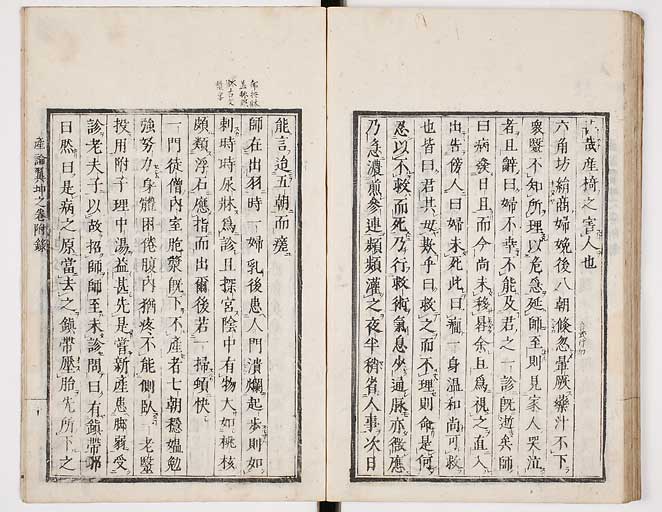 哉産椅之害人也
六角坊絹商婦娩後八朝倐忽暈厥藥汁不下
衆醫不知所理以危急延師至則見家人哭泣
者且辭曰婦不幸不能及君之一診既逝矣師
曰病發日且而今尚未移晷余且爲視之直入
出告傍人曰婦未死此曰 一身温和尚可救
也皆曰君其 救乎曰救之而不理則命是何
忍以不救而死乃行救術氣息少通脉亦微應
乃急濃煎參連頻頻灌之夜半稍省人事次日
能言迨五朝而瘥
師在出羽時一婦乳後患人門潰爛起歩則如
刺時時尿牀爲診且探宮陰中有物大如桃核
頗類浮石應指而出爾後若一掃頓快
一門徒僧内室胞漿既下不産者七朝穩媼勉
強努力身體困倦腹内猶疼不能側臥一老醫
投用附子理中湯益甚先是嘗新産患脚蘚受
診老夫子以故招師師至未診問曰有鎭帶耶
曰然曰是病之原當去之鎭帶壓胎先所下之
産論翼坤之卷附錄